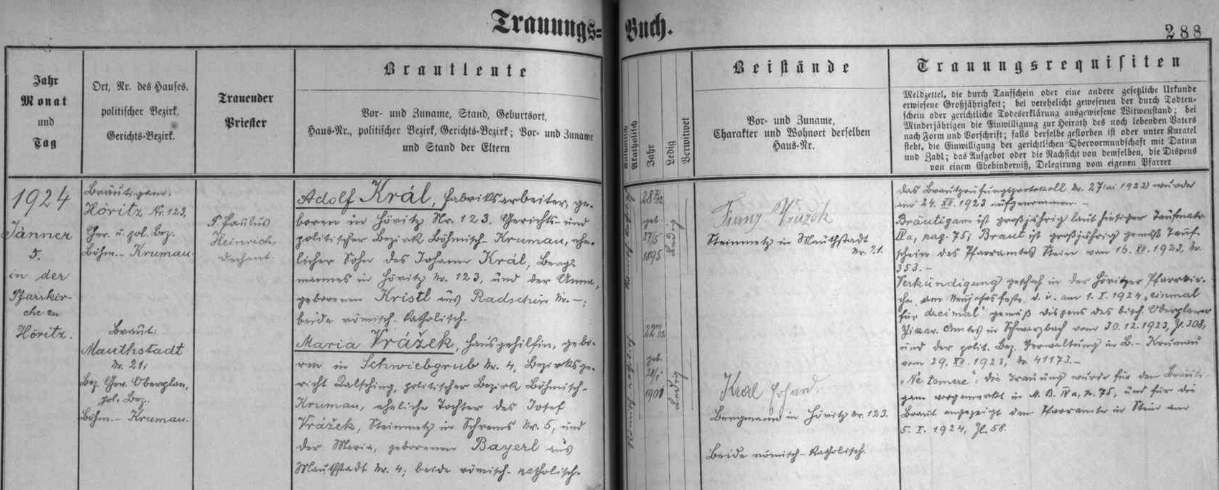 Trauungs-Buch.
288
Jahr
Monat
und
Tag
Ort, Nr. des Hauses,
politischer Bezirk,
Gerichts-Bezirk.
Trauender
Priester
Brautleute
Vor- und Zuname, Stand, Geburtsort,
Haus-Nr., politischer Bezirk, Gerichts-Bezirk; Vor- und Zuname
und Stand der Eltern
Katholisch
Akatholisch
Jahr
Ledig
Verwitwet
Beistände
Vor- und Zuname,
Charakter und Wohnort derselben
Haus-Nr.
Trauungsrequisiten
Meldzettel, die durch Taufschein oder eine andere gesetzliche Urkunde
erwiesene Großjährigkeit; bei verehelicht gewesenen der durch Todten-
schein oder gerichtliche Todeserklärung ausgewiesene Witwenstand; bei
Minderjährigen die Einwilligung zur Heirath des noch lebenden Vaters
nach Form und Vorschrift; falls derselbe gestorben ist oder unter Kuratel
steht, die Einwilligung der gerichtlichen Obervormundschaft mit Datum
und Zahl; das Aufgebot oder die Nachsicht von demselben, die Dispens
von einem Ehehinderniß, Delegirung vom eigenen Pfarrer
1924
Jänner
5.
in der
Pfarrkir-
che in
Höritz.
Bräutigam:
Höritz Nr. 123,
Ger. u. pol. Bez.
Böhm.-Krumau.
Braut:
Mauthstadt
Nr. 21,
Bez. Ger. Oberplan,
pol. Bez.
Böhm.-Krumau.
P. Paulus
Heinrich
Dechant.
Adolf Král, Fabriksarbeiter, ge-
boren in Höritz Nr. 123. Gerichts- und
politischer Bezirk Böhmisch-Krumau, ehe-
licher Sohn des Johann Král, Berg-
mannes in Höritz Nr. 123, und der Anna,
geborenen Kristl aus Radschin Nr. -;
beide römisch-katholisch.
Maria Vrážek, Hausgehilfin, gebo-
ren in Schwiebgrub Nr. 4, Bezirksge-
richt Kalsching, politischer Bezirk Böhmisch-
Krumau, eheliche Tochter des Josef
Vrážek, Steinmetz in Schrems Nr. 5, und
der Maria, geborenen Bayerl aus
Mauthstadt Nr. 4; beide römisch-katholisch.
geb.
1895
Ledig
geb.
Ledig
Franz
Steinmetz in Mauthstadt
Nr. 21.
Kral Johan
Bergmann in Höritz Nr. 123.
Beide römisch-katholisch.
Das Brautprüfungsprotokoll Nr. 27 (ai 1923) wurde
am 24. XII. 1923 aufgenommen.
Bräutigam ist großjährig laut hiesiger Taufmatr.
pag. 75; Braut ist großjährig gemäß Tauf-
schein des Pfarramtes Stein vom 16. XII. 1923, Nr.
353.-
Verkündigung geschah in der Höritzer Pfarrkir-
che am Neujahrsfeste, d. i. am 1. I. 1924, "einmal
für dreimal" gemäß Dispens des bisch. Oberplaner
Vikar. Amtes in Schwarzbach vom 30.12.1923, Zl. 308,
und der polit. Bez. Verwaltung in B.-Krumau
vom 29. XII. 1923, Nr. 41173.-
"Ne temere": die Trauung wurde für den Bräuti-
gam vorgemerkt in M. B. IV a, p. 75, und für die
Braut angezeigt dem Pfarramte in Stein am
5. I. 1924, Zl. 58.